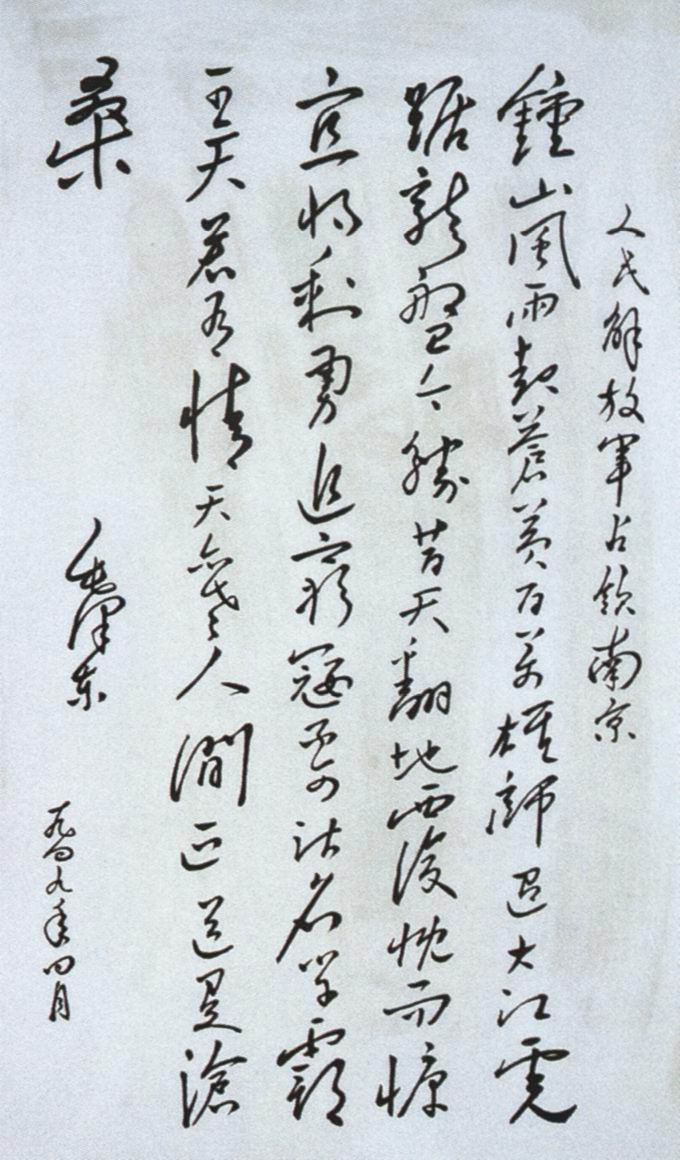 人民解放军占领南京
鍾山風雨起蒼黄百万雄師过大江虎
踞龍盘今勝昔天翻地覆慨而慷
宜将剩勇追窮寇不可沽名学霸
王天若有情天亦老人間正道是滄
桑
毛泽东
一九四九年四月